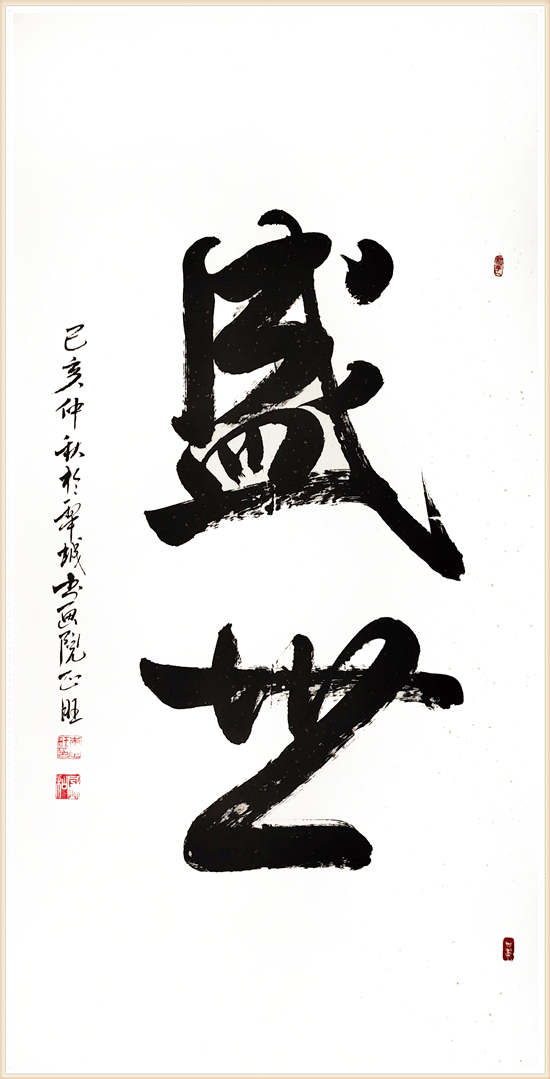 盛世
己亥仲秋於城书画院正旺